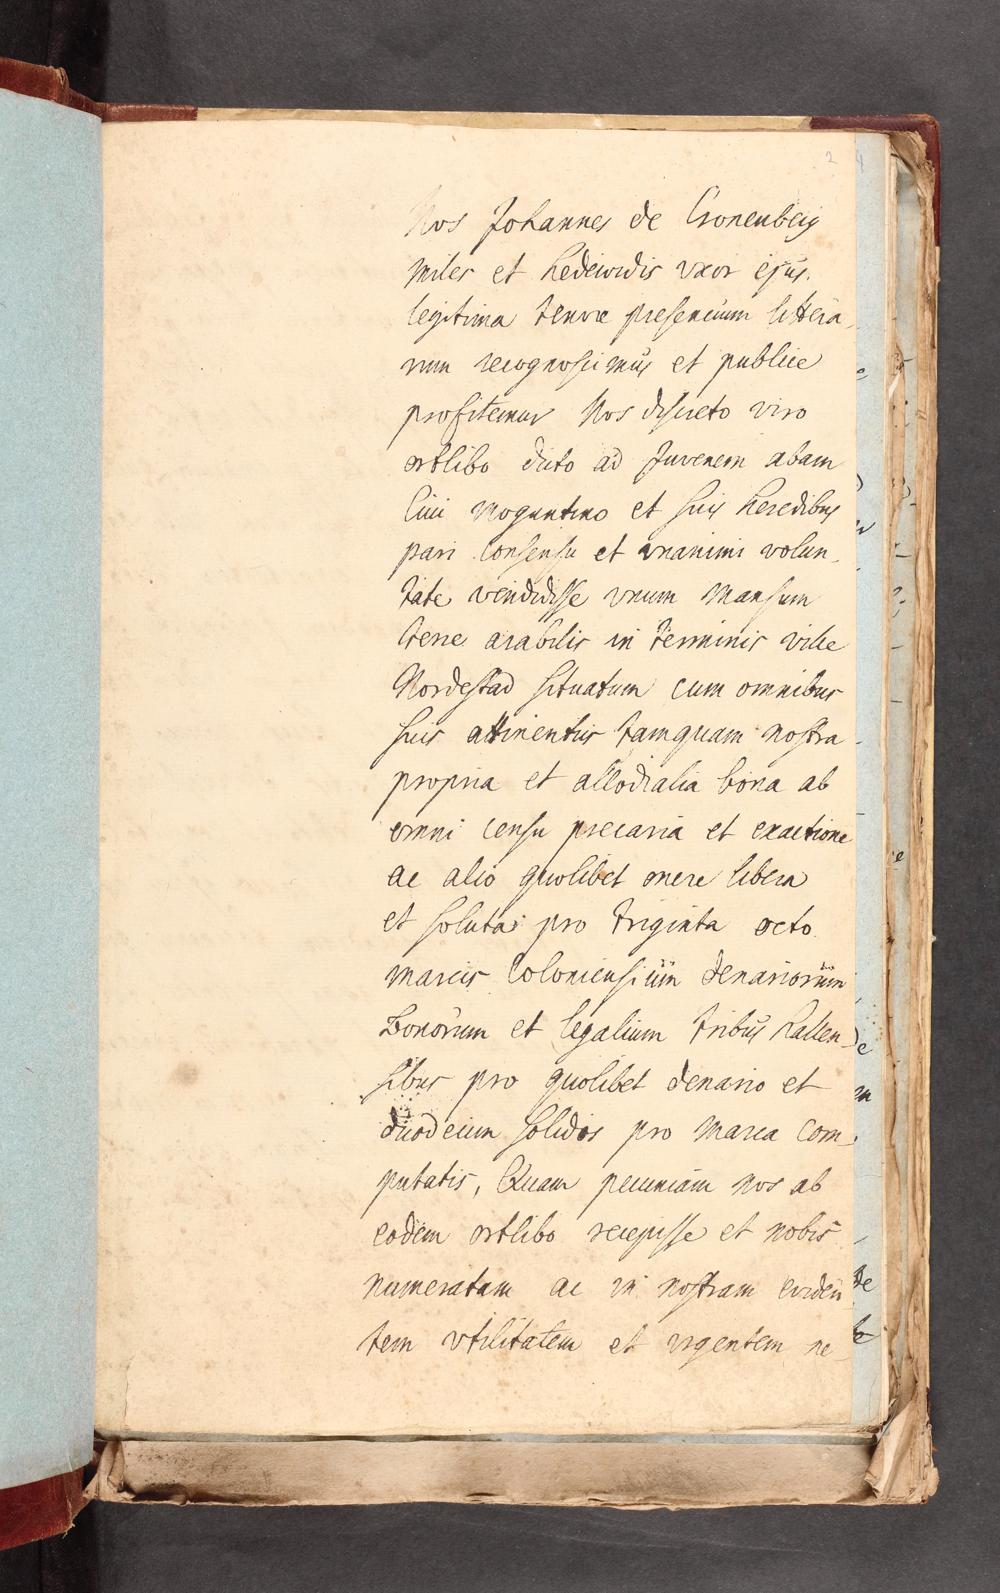 2
Nos Johannes de Cronenberg
Miles et Hedewidis vxor ejus.
legitima tenore presencium littera-
rum recognoscimus et publice
profitemur Nos discreto viro
ortlibo dicto ad Juvenem abam
Civi Moguntino et suis heredibus
pari consensu et vnanimi volun-
tate vendidisse vnum Mansum
terre arabilis in terminis ville
Nordestad situatum cum omnibus
suis attinentiis tamquam nostra
propria et allodialia bona ab
omni censu precaria et exactione
ac alio quolibet onere libera
et soluta pro triginta octo
marcis Coloniensium denariorum
Bonorum et legalium tribus hallen-
sibus pro quolibet denario et
duodecim solidos pro Marca com-
putatis, Quam pecuniam nos ab
eodem ortlibo recepisse et nobis
numeratam ac in nostram eviden
tem vtilitatem et vrgentem ne-